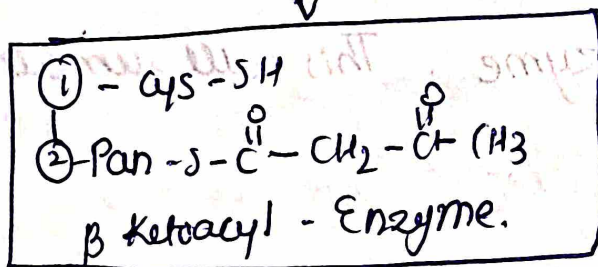 ① - Cys - SH
O O
② - Pan - S - C - CH2 - C - CH3
β Ketoacyl - Enzyme.